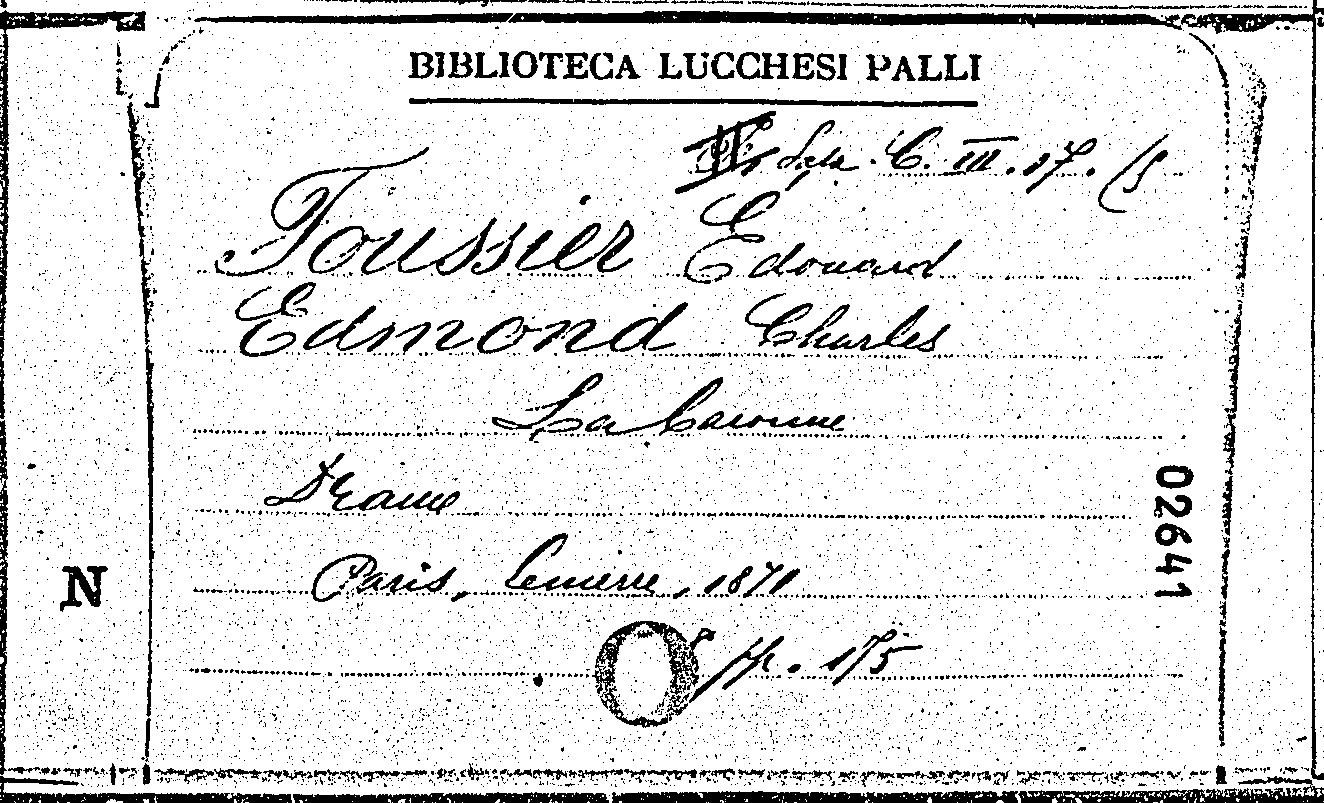 BIBLIOTECA LUCCHESI PALLI
Sala C. III. 17. (5
Foussier Edouard
Edmond Charles
La baronne
Drame
Paris, Lemerre, 1871
pp. 175
N
02641